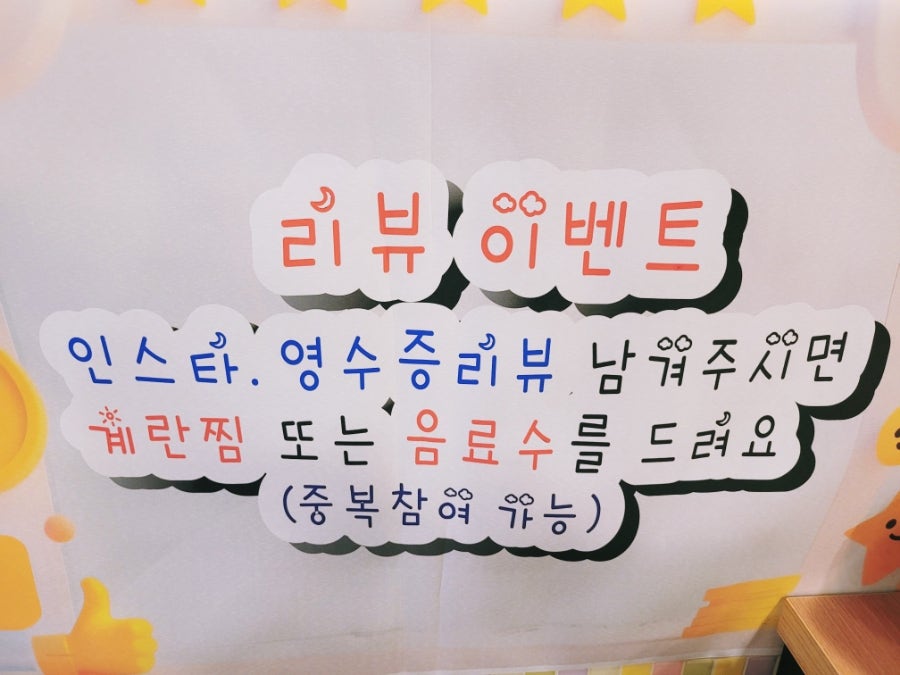 리뷰 이벤트
인스타. 영수증리뷰 남겨주시면
계란찜 또는 음료수를 드려요
(중복참여 가능)